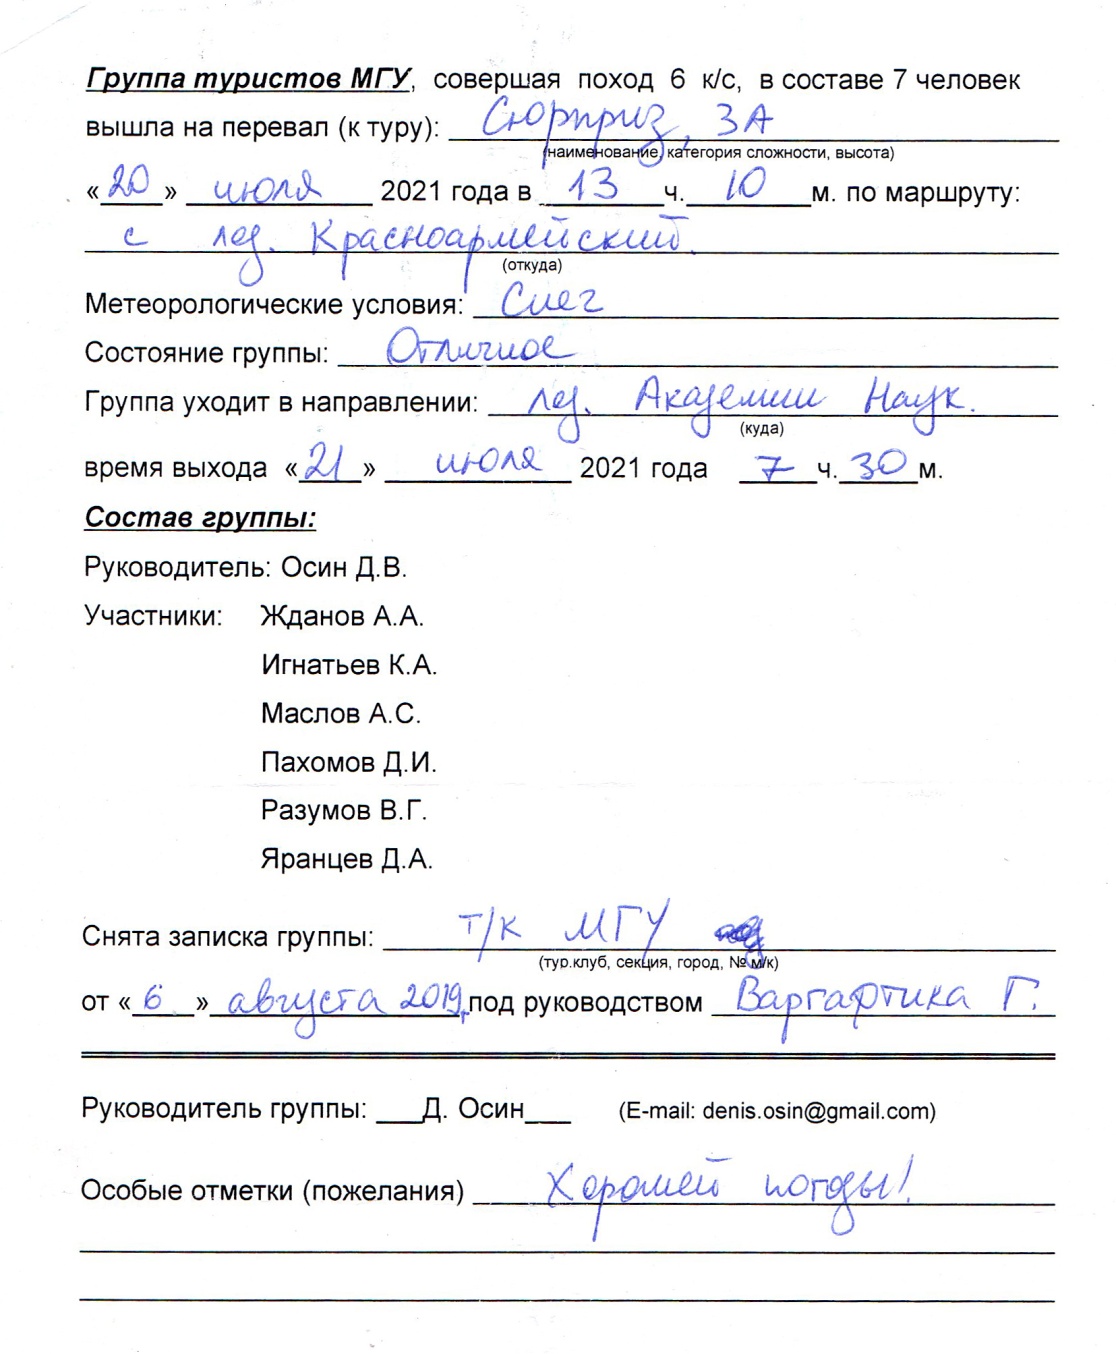 Группа туристов МГУ, совершая поход 6 к/с, в составе 7 человек
вышла на перевал (к туру): Сюрприз, 3А
(наименование, категория сложности, высота)
«20» июля 2021 года в 13 ч. 10 м. по маршруту:
с лед. Красноармейский.
(откуда)
Метеорологические условия: Снег
Состояние группы: Отличное
Группа уходит в направлении: лед. Академии Наук.
(куда)
время выхода «21» июля 2021 года 7 ч. 30 м.
Состав группы:
Руководитель: Осин Д.В.
Участники: Жданов А.А.
Игнатьев К.А.
Маслов А.С.
Пахомов Д.И.
Разумов В.Г.
Яранцев Д.А.
Снята записка группы: т/к МГУ
(тур.клуб, секция, город, № м/к)
от «6» августа 2019г. под руководством Варгафтика Г.
Руководитель группы: ___Д. Осин___ (E-mail: denis.osin@gmail.com)
Особые отметки (пожелания) Хорошей погоды!